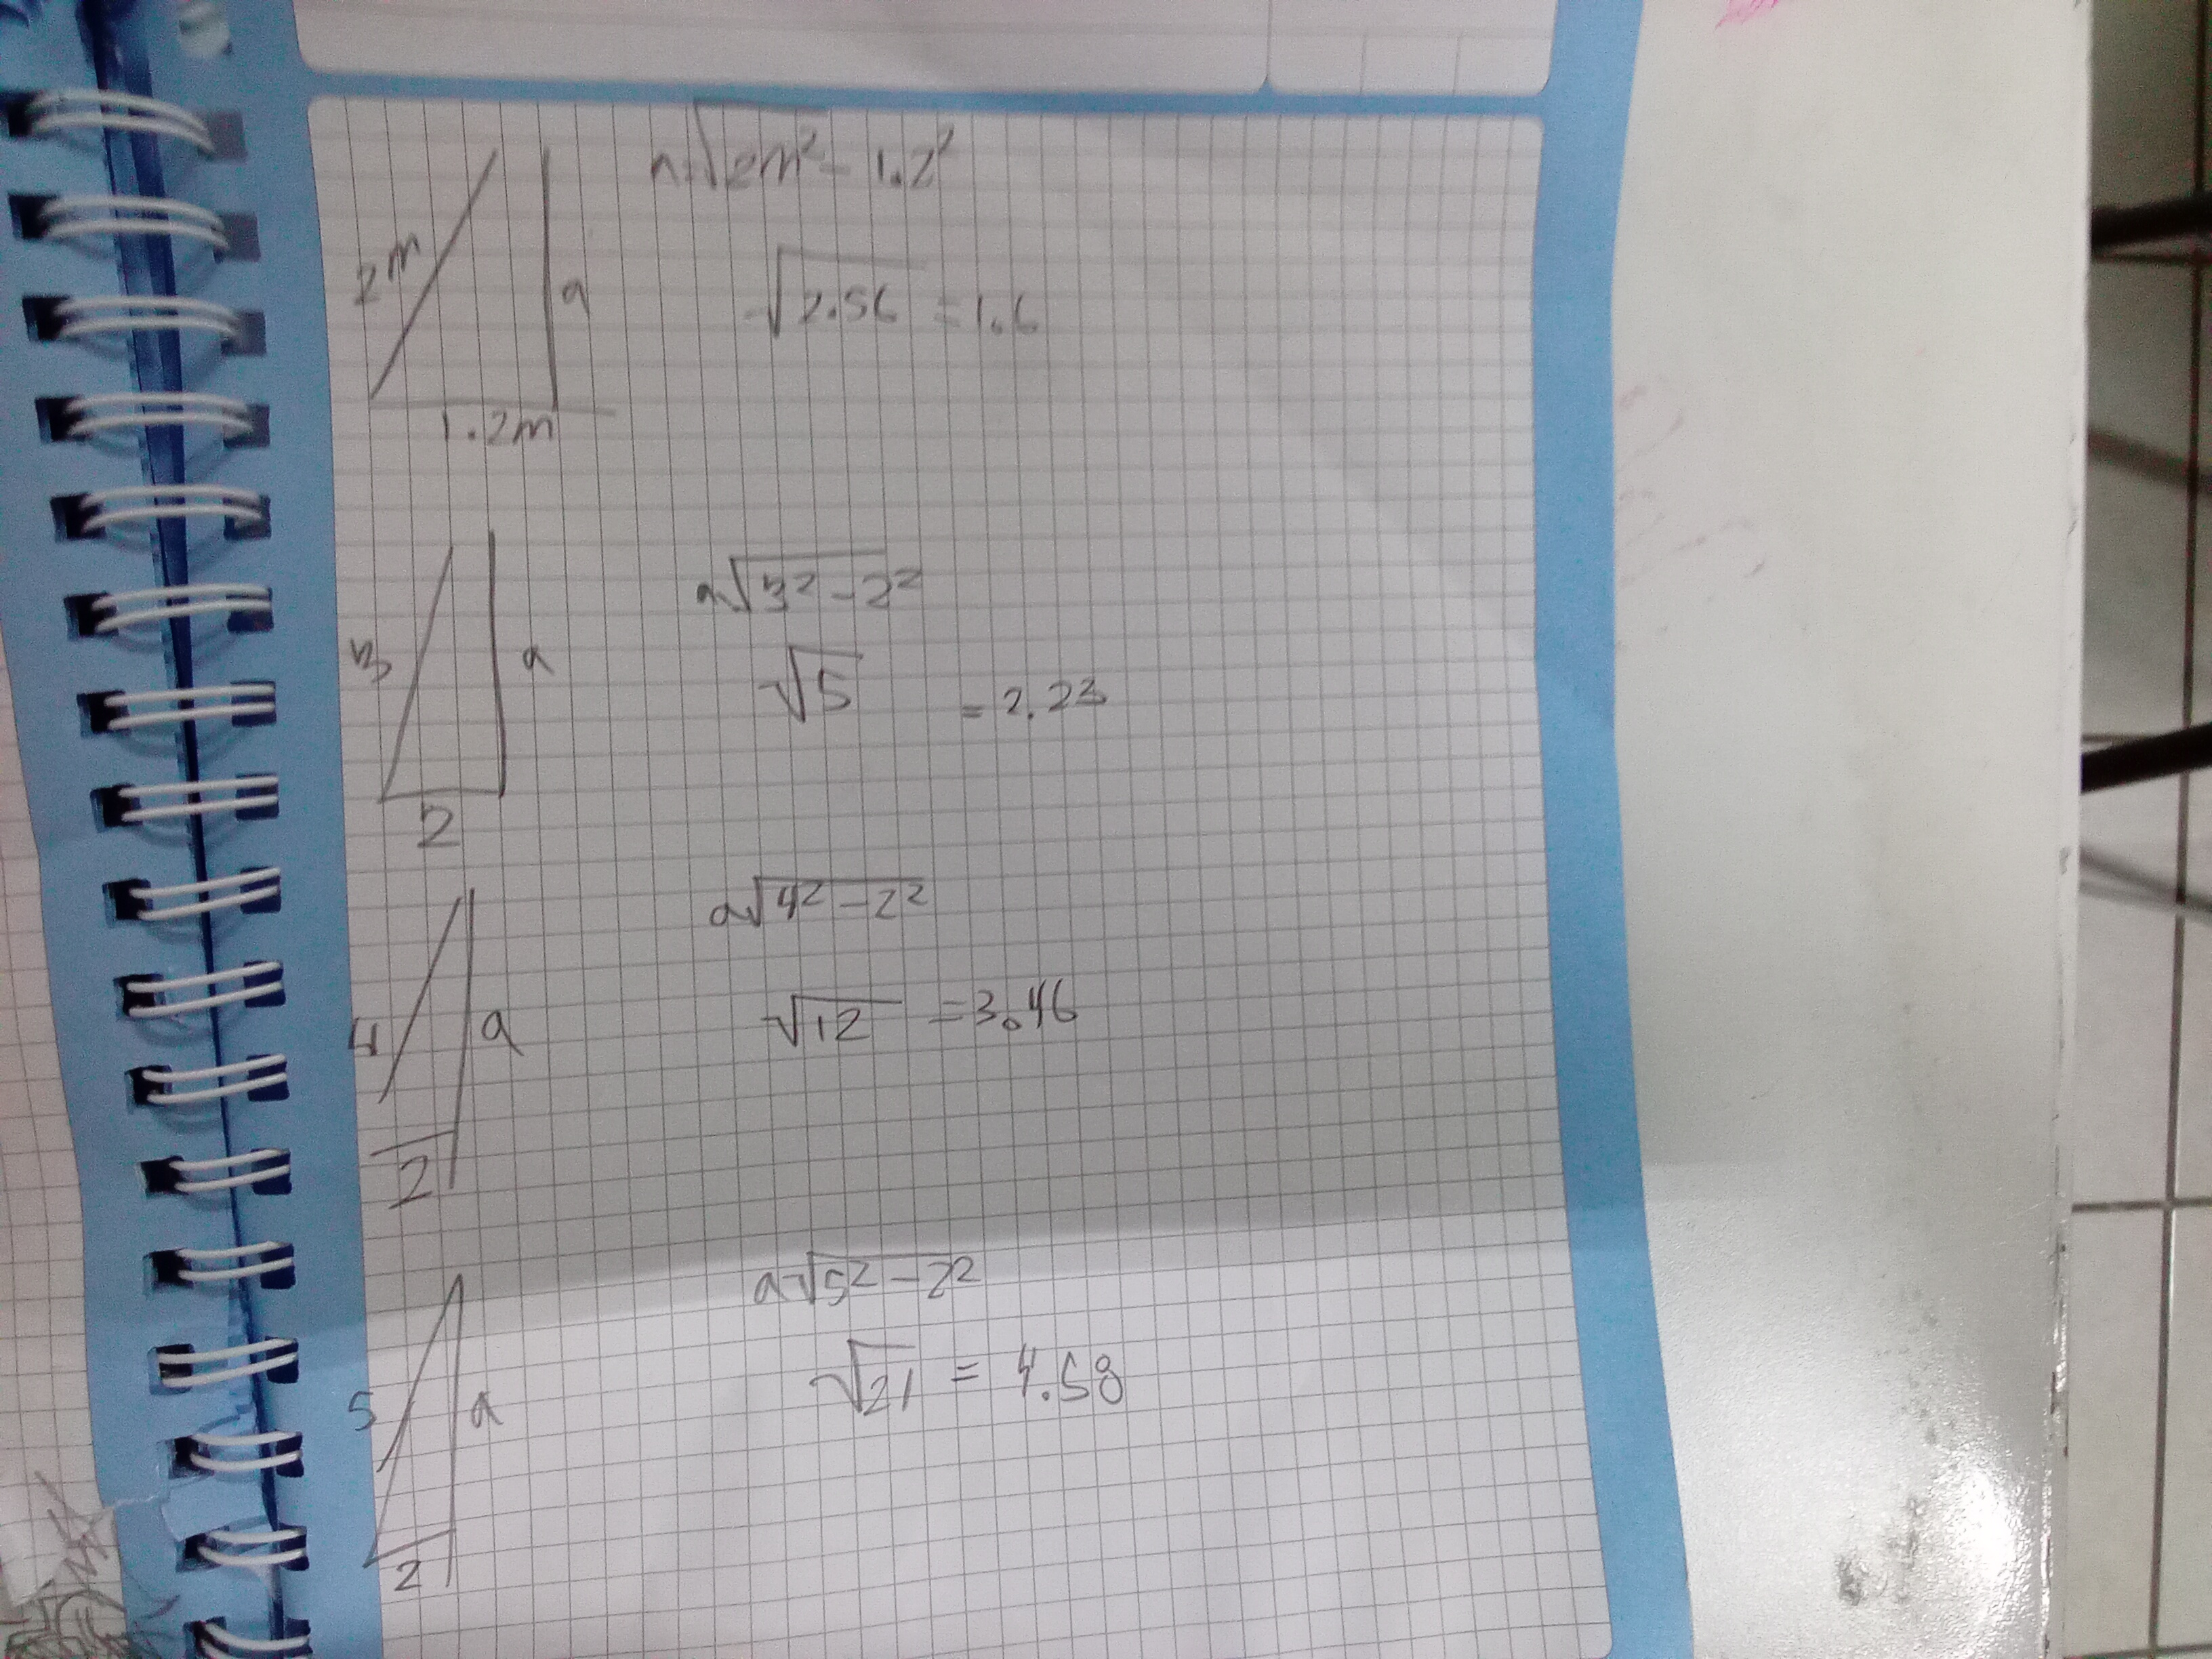 2m
a
1.2m
a √2m² - 1.2²
√2.56 = 1.6
3
a
2
a √3² - 2²
√5 = 2.23
4
a
2
a √4² - 2²
√12 = 3.46
5
a
2
a √5² - 2²
√21 = 4.58